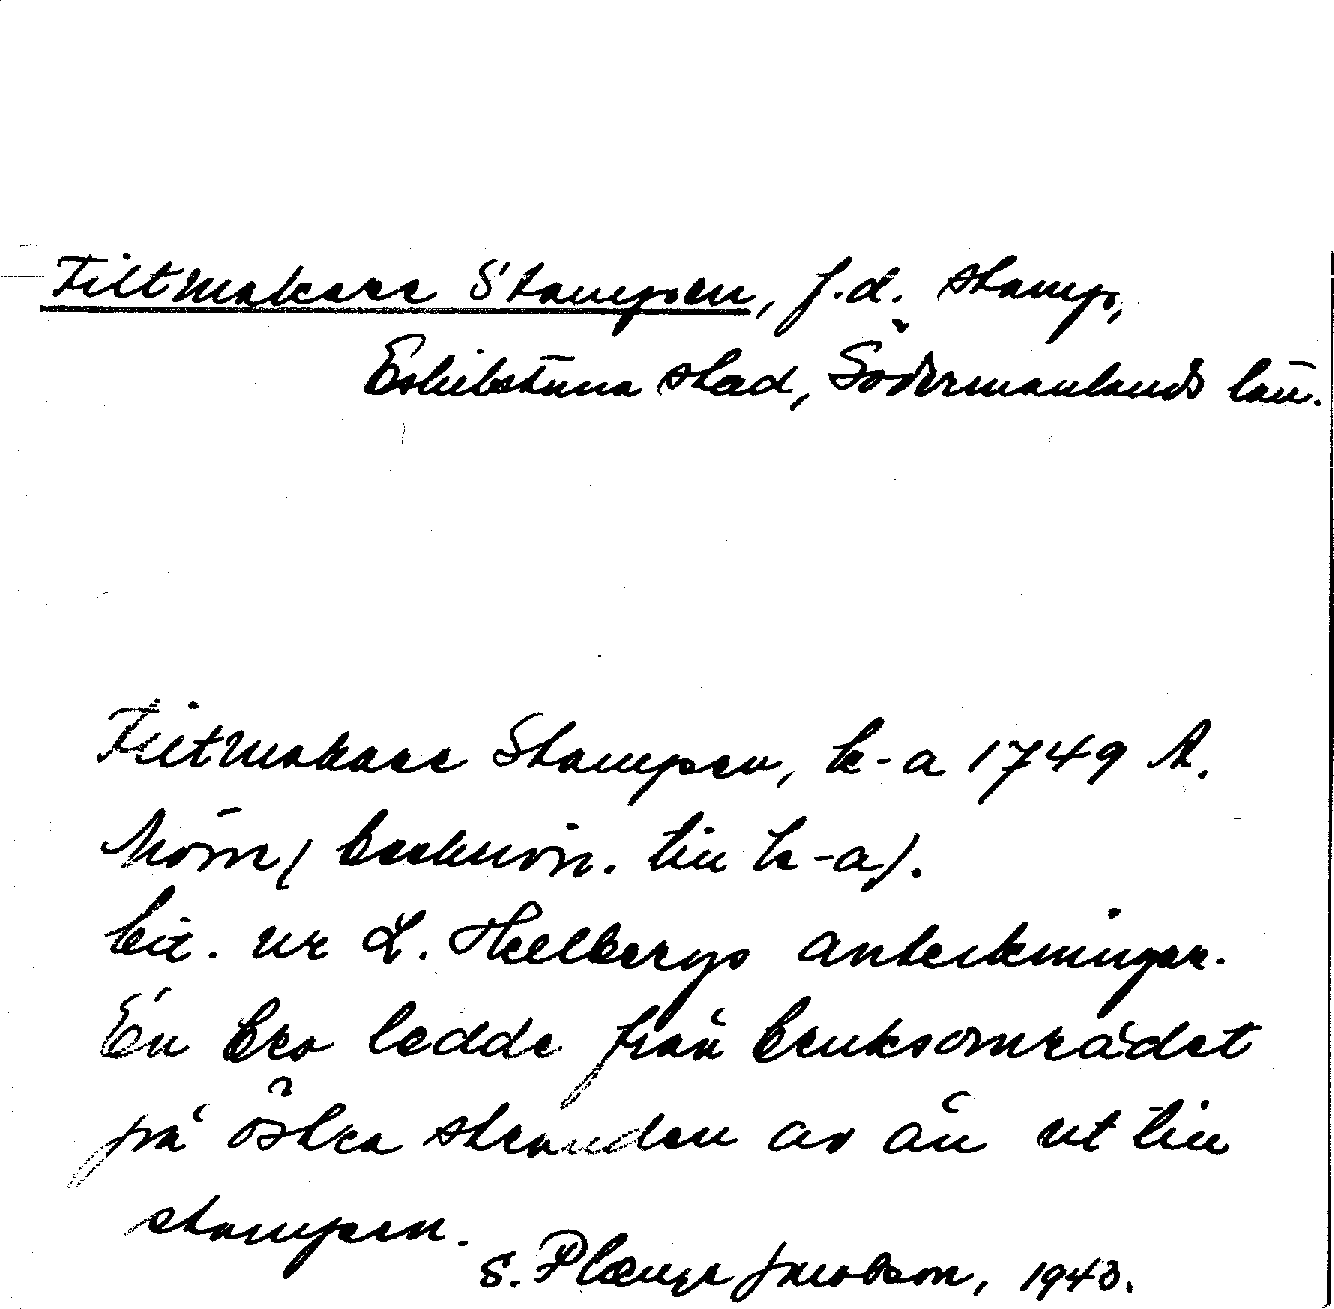 Filtmakare Stampen, f.d. stamp,
Eskilstuna stad, Södermanlands län.
Filtmakare Stampen, k-a 1749 A.
Mörn/ beskrivn. till k-a/.
ur L. Hellbergs anteckningar.
En bro ledde från bruksområdet
på östra stranden av ån ut till
stampen.
S. Plænge Jacobson, 1943.